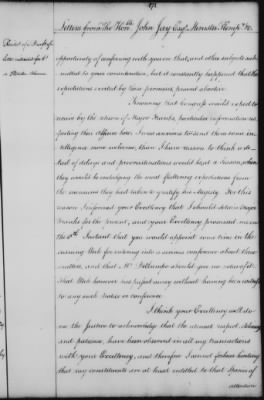 471
Letters from the Hon. John Jay Esq. Minister Plenip. &c.
opportunity of conferring with you on that, and other subjects sub
mitted to your consideration, but it constantly happened that the
expectations excited by
Knowing that Congress would expect to
receive by the return of Major Franks, particular information re
specting their affairs here I was anxious to send them some in
telligence more welcome, than I have reason to think a de
tail of delays and procrastinations would be at a Season, when
they would be indulging the most flattering expectations from
the measures they had taken to gratify his Majesty. For this
reason I informed your Excellency that I should detain Major
Franks for the present, and your Excellency promised me on
the 5th Instant that you would appoint some time in the
ensuing Week for entering into a serious conference about these
matters, and that Mr. Del Campo should give me notice of it.
That Week however has passed away without having been
to any such notice or conference.
I think your Excellency will do
me the Justice to acknowledge that the utmost respect, delicacy
and patience, have been observed in all my transactions
with your Excellency, and therefore I cannot forbear hoping
that my constituents are at least entitled to that Species of
attention